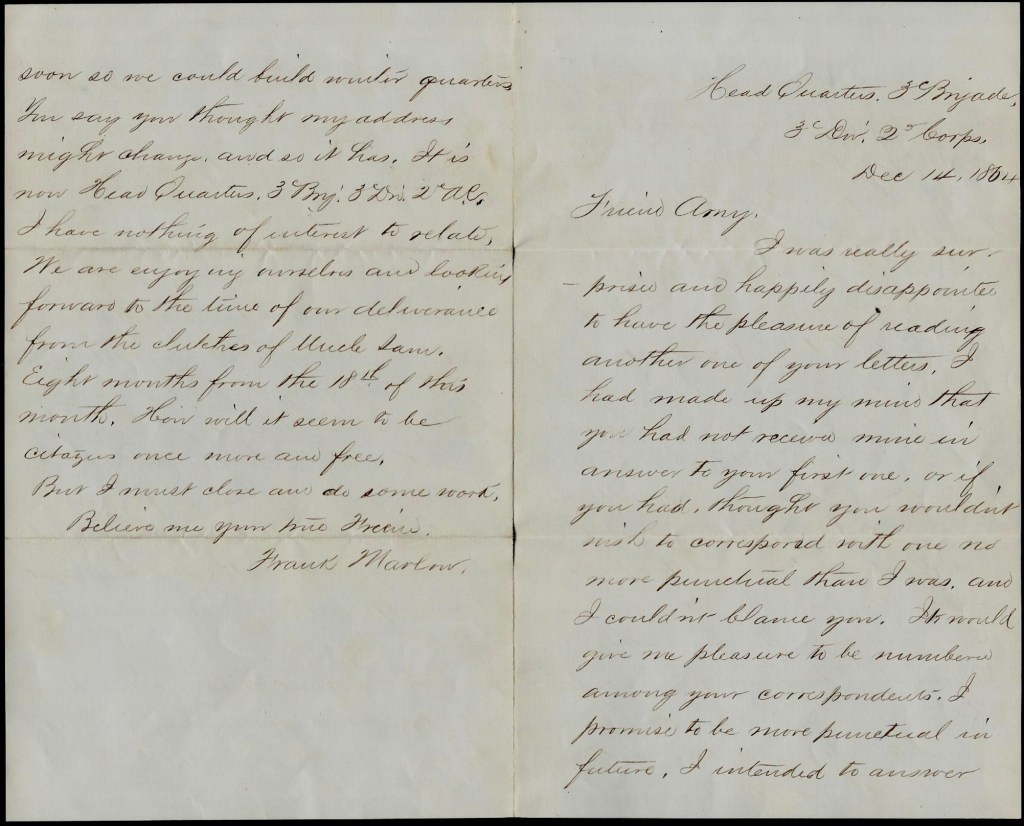 Head Quarters. 3c Brigade,
3c Div. 2d Corps.
Dec 14, 1864
Friend Amy.
I was really sur-
-prised and happily disappointed
to have the pleasure of reading
another one of your letters, I
had made up my mind that
you had not received mine in
answer to your first one, or if
you had, thought you wouldn't
wish to correspond with one no
more punctual than I was, and
I couldn't blame you. It would
give me pleasure to be numbered
among your correspondents. I
promise to be more punctual in
future, I intended to answer
soon so we could build winter quarters
You say you thought my address
might change, and so it has. It is
now Head Quarters, 3c Brig. 3c Div. 2d A.C.
I have nothing of interest to relate,
We are enjoying ourselves and looking
forward to the time of our deliverance
from the clutches of Uncle Sam.
Eight months from the 18th of this
month. How will it seem to be
citazens once more and free,
But I must close and do some work.
Believe me your true Friend.
Frank Marlow.